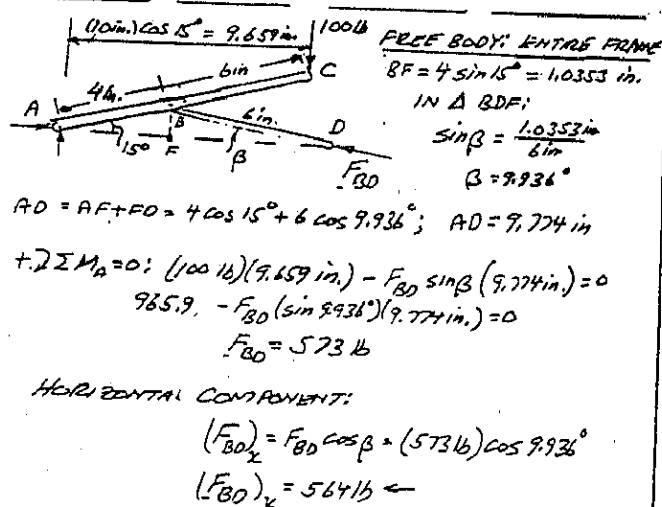 (10in.) cos 15° = 9.659 in.
100 lb
FREE BODY: ENTIRE FRAME
6in
C
BF = 4 sin 15° = 1.0353 in.
4in.
A
IN Δ BDF:
B
6in.
D
sin β = 1.0353in / 6in
15°
F
β
F_BD
β = 9.936°
AD = AF+FD = 4 cos 15° + 6 cos 9.936°; AD = 9.774 in
+⤸ΣM_A = 0: (100 lb)(9.659 in.) - F_BD sin β (9.774 in.) = 0
965.9. - F_BD (sin 9.936°)(9.774 in.) = 0
F_BD = 573 lb
HORIZONTAL COMPONENT:
(F_BD)_x = F_BD cos β = (573 lb) cos 9.936°
(F_BD)_x = 564 lb ←